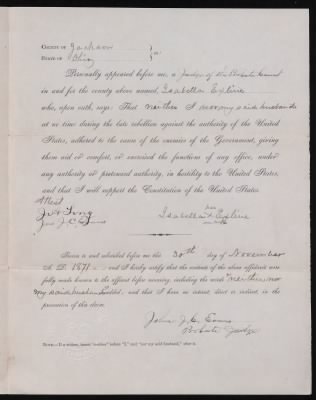 COUNTY OF Jackson
STATE OF Ohio } ss:
Personally appeared before me, a Judge of the Probate Court
in and for the county above named, Isabella Exline
who, upon oath, says: That neither I nor my said husband
at no time during the late rebellion against the authority of the United
States, adhered to the cause of the enemies of the Government, giving
them aid or comfort, or exercised the functions of any office, under
any authority or pretended authority, in hostility to the United States,
and that I will support the Constitution of the United States.
Attest
J. W. Long
J. C. Evans
Isabella her X mark Exline
Sworn to and subscribed before me this 30th day of November
A. D. 1871 and I hereby certify that the contents of the above affidavit were
fully made known to the affiant before swearing, including the words "neither nor
my said husband" added, and that I have no interest, direct or indirect, in the
prosecution of this claim.
John J. C. Evans
Probate Judge
NOTE.—If a widow, insert "neither" before "I," and "nor my said husband," after it.